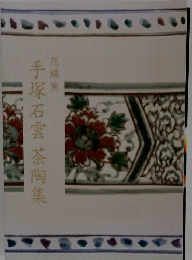 花蝶窯
手塚石雲 茶陶集